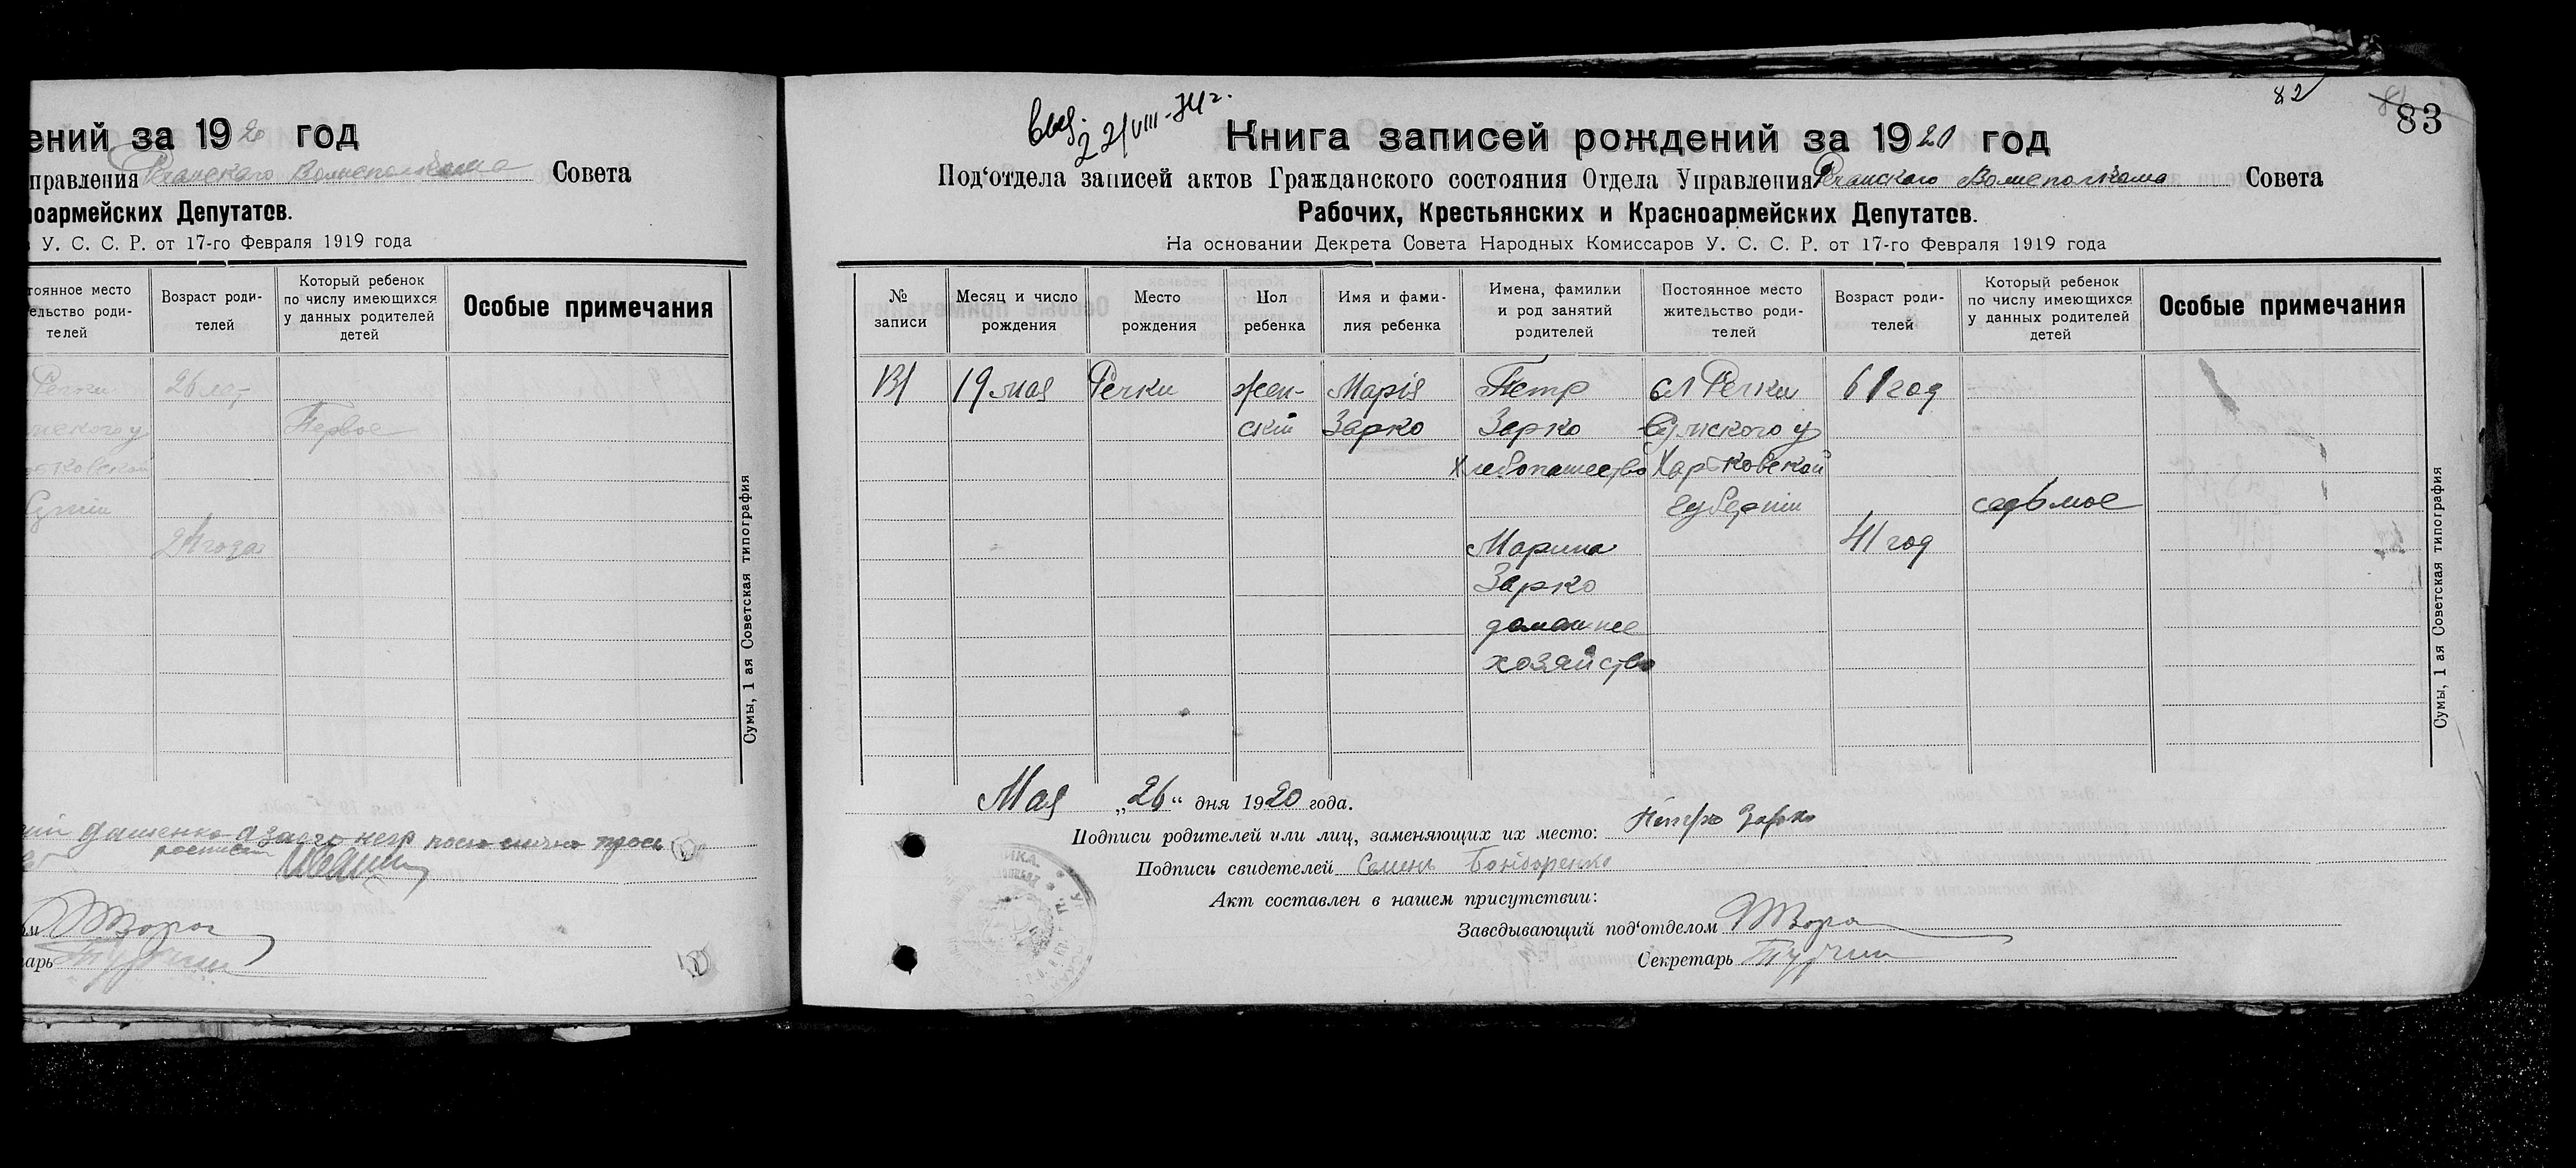 ений за 1920 год
правления Речанского Совета
ноармейских Депутатов.
У. С. С. Р. от 17-го Февраля 1919 года
тоянное место
ельство роди-
телей
Возраст роди-
телей
Который ребенок
по числу имеющихся
у данных родителей
детей
Особые примечания
Речки 26 лет
мского у Первое
Сумы, 1 ая Советская типография
22/VIII-
82
83
Книга записей рождений за 1920 год
Под'отдела записей актов Гражданского состояния Отдела Управления Речанского Волисполкома Совета
Рабочих, Крестьянских и Красноармейских Депутатов.
На основании Декрета Совета Народных Комиссаров У. С. С. Р. от 17-го Февраля 1919 года
№
записи
Месяц и число
рождения
Место
рождения
Пол
ребенка
Имя и фами-
лия ребенка
Имена, фамилии
и род занятий
родителей
Постоянное место
жительство роди-
телей
Возраст роди-
телей
Который ребенок
по числу имеющихся
у данных родителей
детей
Особые примечания
131 19 мая Речки жен- Марія Петр сл Речки 61 год
скій Зарко Зарко Сумского у
Хлебопашество Харьковской
губерніи седьмое
Марина 41 год
Зарко
домашнее
хозяйство
Сумы, 1 ая Советская типография
Мая „26“ дня 1920 года.
Подписи родителей или лиц, заменяющих их место: Петро Зарко
Подписи свидетелей Семенъ Бондоренко
Акт составлен в нашем присутствии:
Заведывающий под'отделом
Секретарь